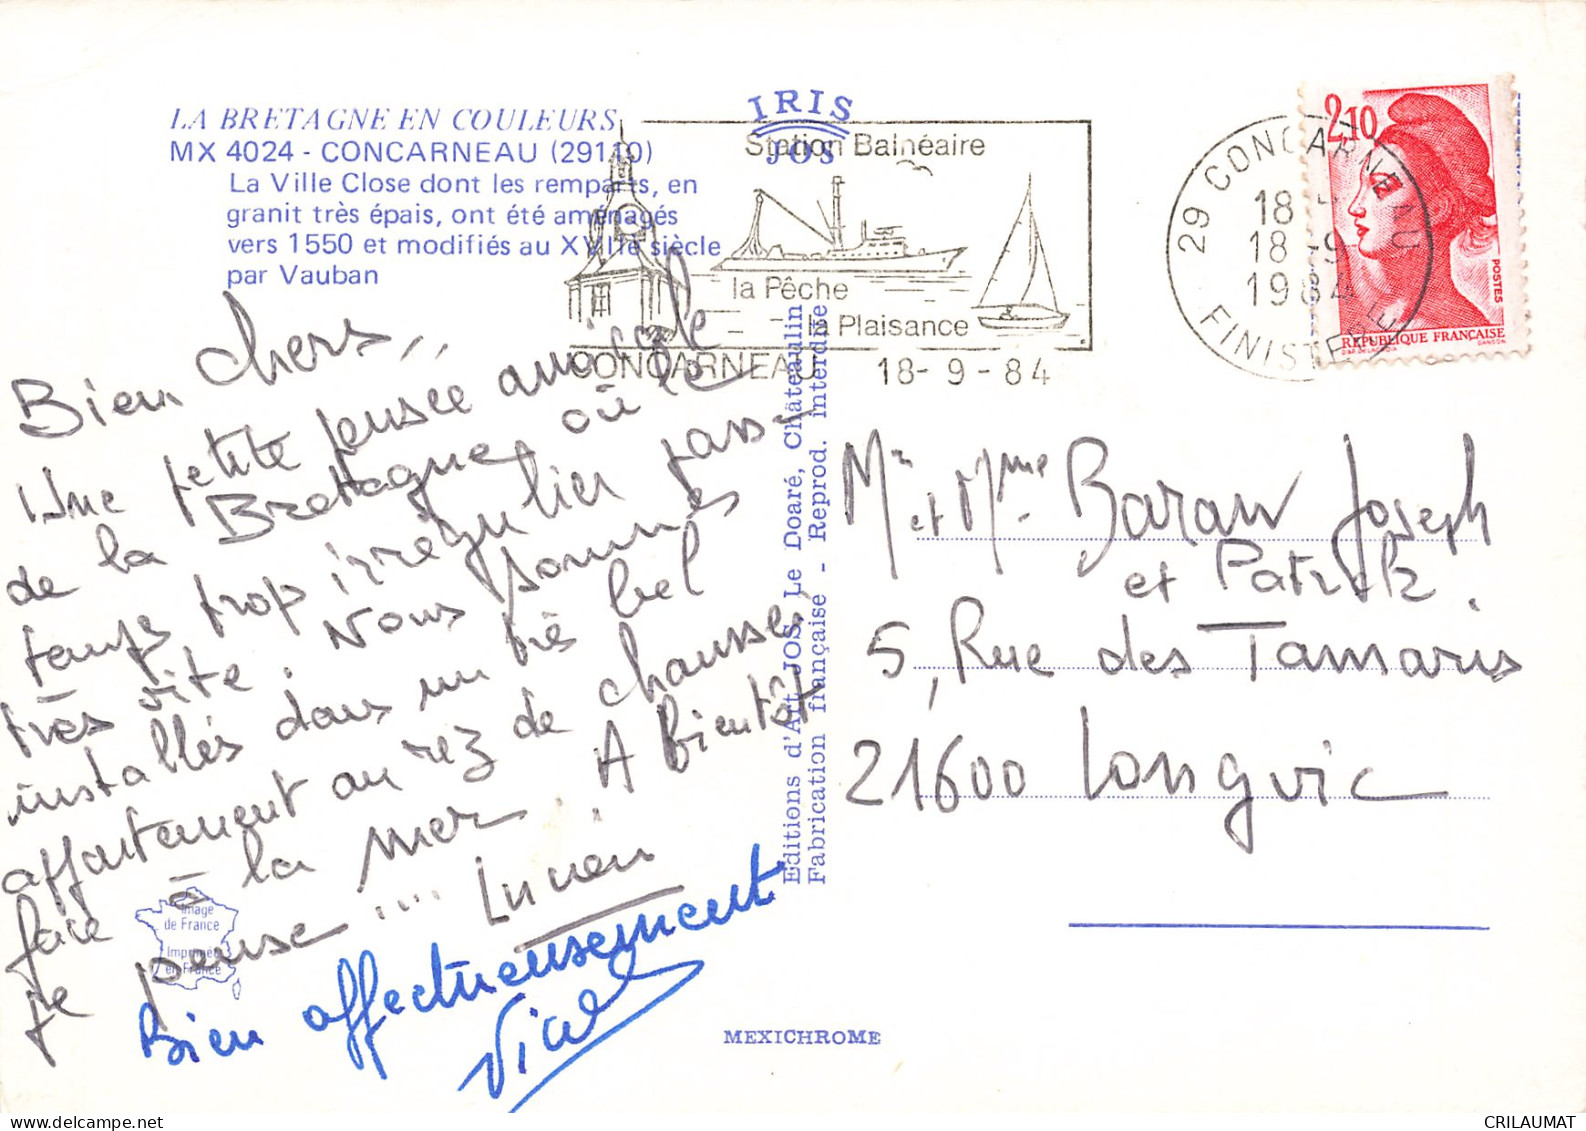 LA BRETAGNE EN COULEURS
MX 4024 - CONCARNEAU (29110)
La Ville Close dont les remparts, en
granit très épais, ont été aménagés
vers 1550 et modifiés au XVIIe siècle
par Vauban
IRIS
JOS
Station Balnéaire
la Pêche
la Plaisance
CONCARNEAU 18-9-84
29 CONCARNEAU
18
18-9
1984
FINISTERE
2,10
POSTES
REPUBLIQUE FRANÇAISE
D'AP. DELACROIX GANDON
Bien chers,,
Une petite pensée amicale
de la Bretagne où le
temps trop irrégulier pass-
très vite. Nous sommes
installés dans un très bel
appartement au rez de chaussée,
face à la mer. A bientôt
je pense .... Lucien
Bien affectueusement
Editions d'Art JOS Le Doaré, Châteaulin
Fabrication française - Reprod. interdite
Mr et Mme Baraw Joseph
et Patrick.
5, Rue des Tamaris
21600 Longvic
Image
de France
Imprimée
en France
MEXICHROME
CRILAUMAT